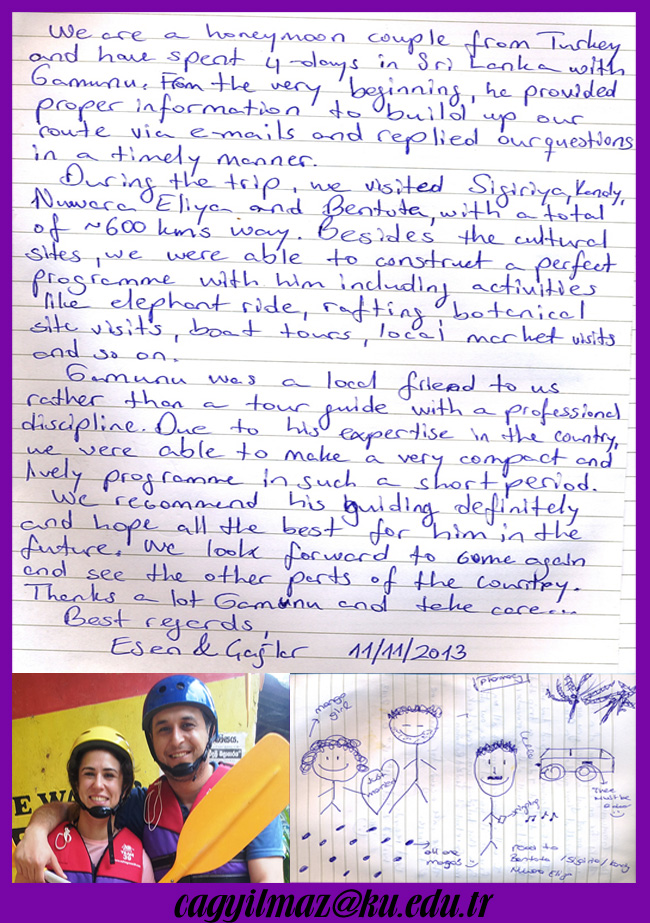 We are a honeymoon couple from Turkey
and have spent 4-days in Sri Lanka with
Gamunu. From the very beginning, he provided
proper information to build up our
route via e-mails and replied our questions
in a timely manner.
During the trip, we visited Sigiriya, Kandy,
Nuwara Eliya and Bentota, with a total
of ~600 kms way. Besides the cultural
sites, we were able to construct a perfect
programme with him including activities
like elephant ride, rafting botanical
site visits, boat tours, local market visits
and so on.
Gamunu was a local friend to us
rather than a tour guide with a professional
discipline. Due to his expertise in the country,
we were able to make a very compact and
lively programme in such a short period.
We recommend his guiding definitely
and hope all the best for him in the
future. We look forward to come again
and see the other parts of the country.
Thanks a lot Gamunu and take care...
Best regards,
Esen & Çağlar 11/11/2013
WE WA
TEAM
mango
girl
Just
married
all are
mangos
singing
road to
Bentota / Sigiria / Kandy
cagyilmaz@ku.edu.tr